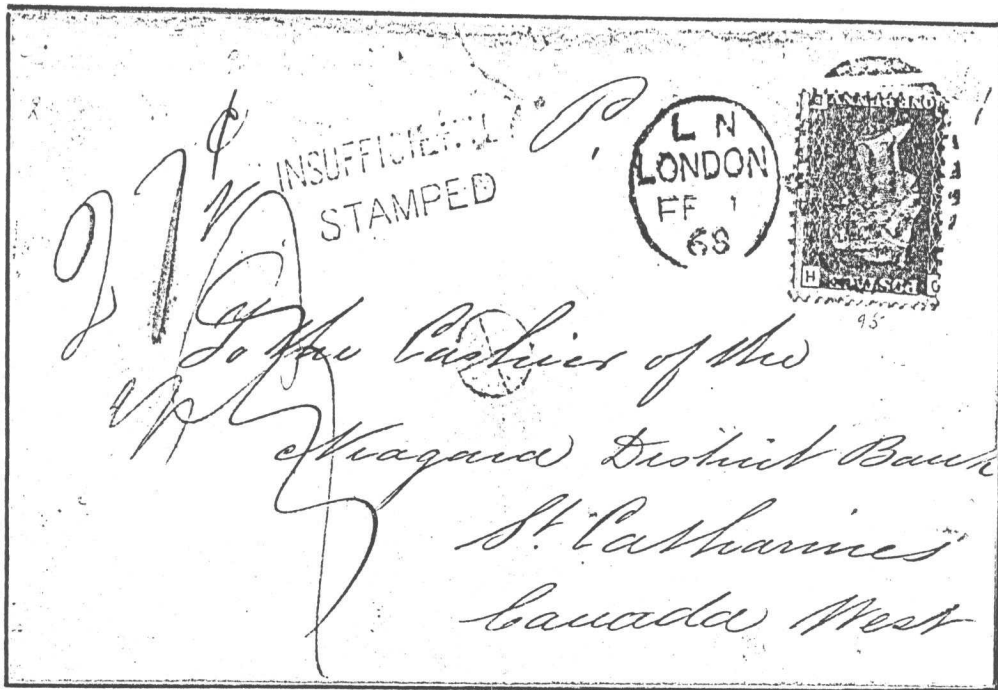 INSUFFICIENTLY
STAMPED
P.
LN
LONDON
FE 1
68
ONE PENNY
H
POSTAGE
95
¢
To the Cashier of the
Niagara District Bank
St. Catharines
Canada West